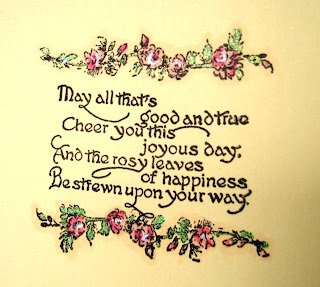 May all that's
good and true
Cheer you this
joyous day.
And the rosy leaves
of happiness
Be strewn upon your way.